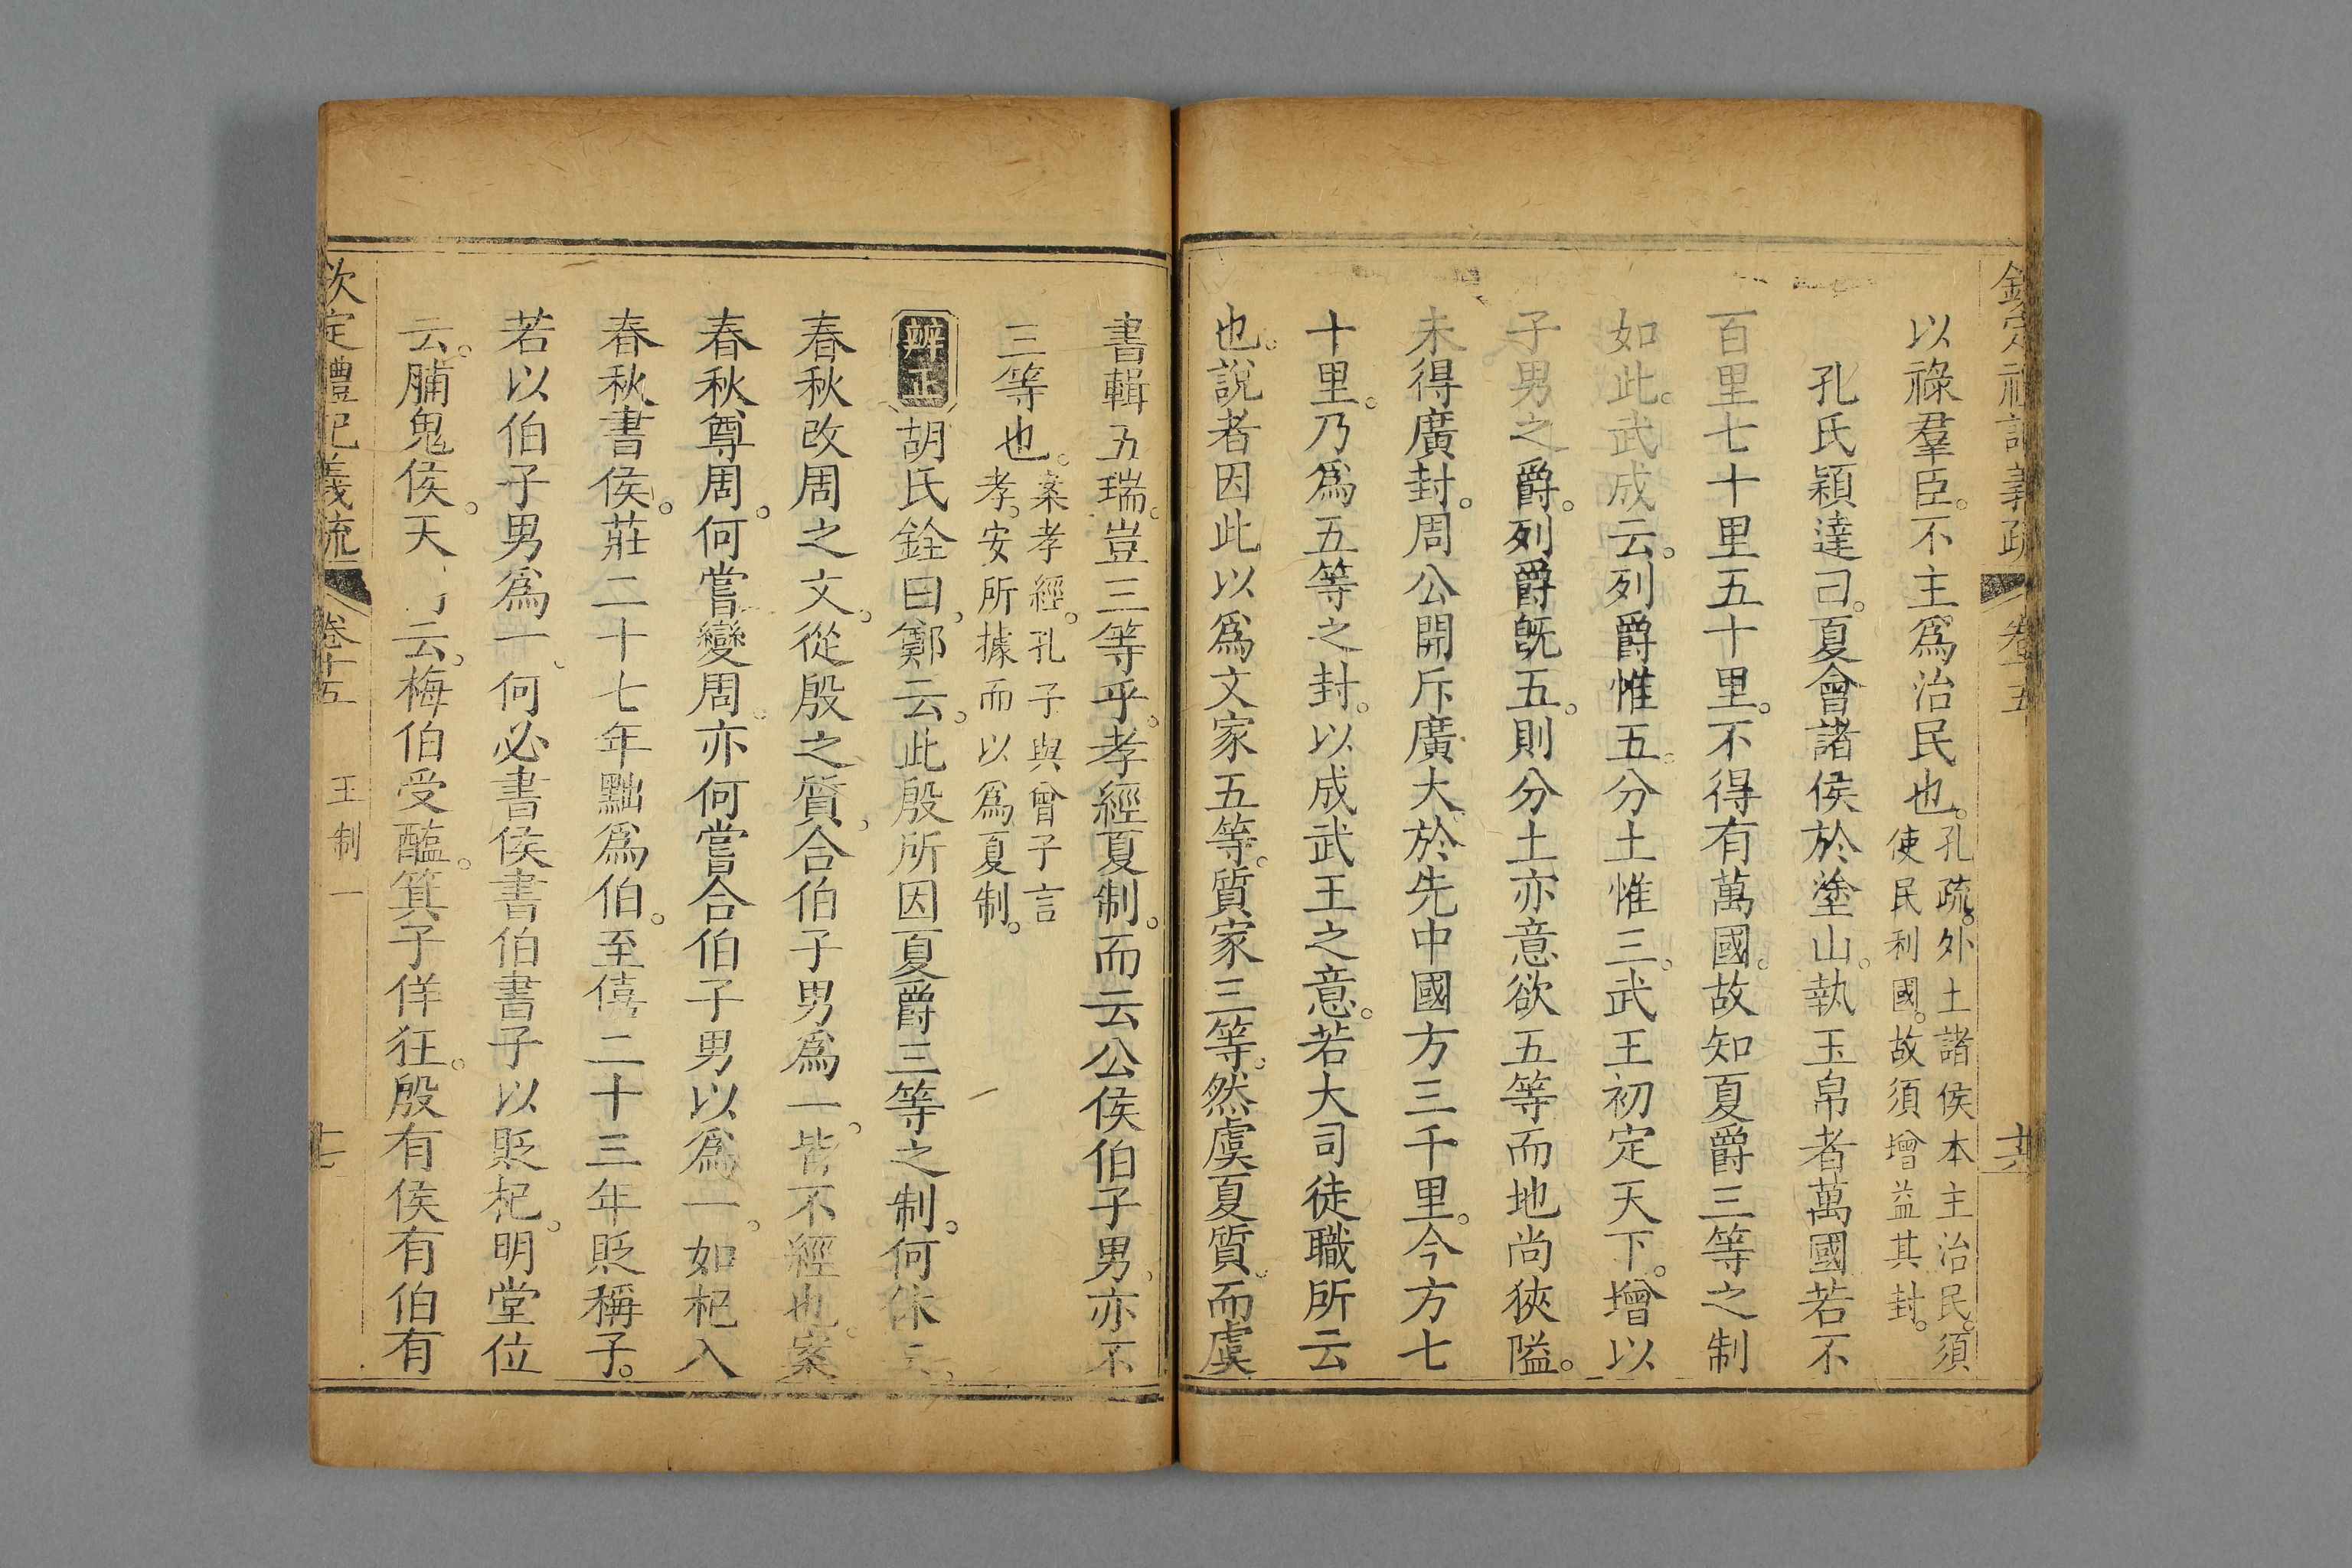 欽定禮記義疏 卷十五 十六
以祿羣臣。不主爲治民也。孔疏。外土諸侯本主治民。須
使民利國。故須增益其封。
孔氏穎達曰。夏會諸侯於塗山。執玉帛者萬國若不
百里七十里五十里。不得有萬國。故知夏爵三等之制
如此。武成云。列爵惟五。分土惟三。武王初定天下。增以
子男之爵。列爵旣五。則分土亦意欲五等而地尚狹隘。
未得廣封。周公開斥廣大。於先中國方三千里。今方七
十里。乃爲五等之封。以成武王之意。若大司徒職所云
也。說者因此以爲文家五等。質家三等。然虞夏質。而虞
書輯五瑞。豈三等乎。孝經夏制。而云公侯伯子男。亦不
三等也。案孝經。孔子與曾子言
孝。安所據而以爲夏制。
辨正 胡氏銓曰。鄭云。此殷所因夏爵三等之制。何休云。
春秋改周之文。從殷之質。合伯子男爲一。皆不經也。案
春秋尊周。何嘗變周。亦何嘗合伯子男以爲一。如杞入
春秋書侯。莊二十七年黜爲伯。至僖二十三年貶稱子。
若以伯子男爲一。何必書侯書伯書子以貶杞。明堂位
云。脯鬼侯。天 云。梅伯受醢。箕子佯狂。殷有侯有伯有
欽定禮記義疏 卷十五 王制一 十七